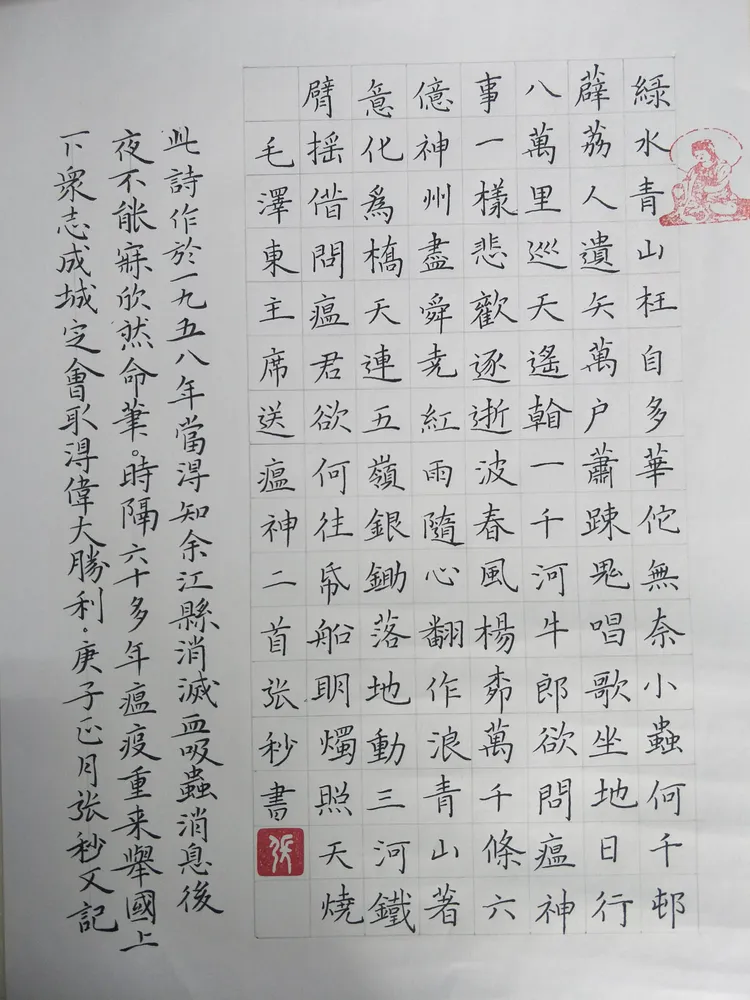 綠水青山枉自多華佗無奈小蟲何千邨
薜荔人遺矢萬户蕭踈鬼唱歌坐地日行
八萬里巡天遙翰一千河牛郎欲問瘟神
事一樣悲歡逐逝波春風楊柳萬千條六
億神州盡舜堯紅雨隨心翻作浪青山著
意化爲橋天連五嶺銀鋤落地動三河鐵
臂摇借問瘟君欲何往帋船明燭照天燒
毛澤東主席送瘟神二首张秒書
张
此詩作於一九五八年當得知余江縣消滅血吸蟲消息後
夜不能寐欣然命筆。時隔六十多年瘟疫重来舉國上
下衆志成城定會取得偉大勝利.庚子正月张秒又記